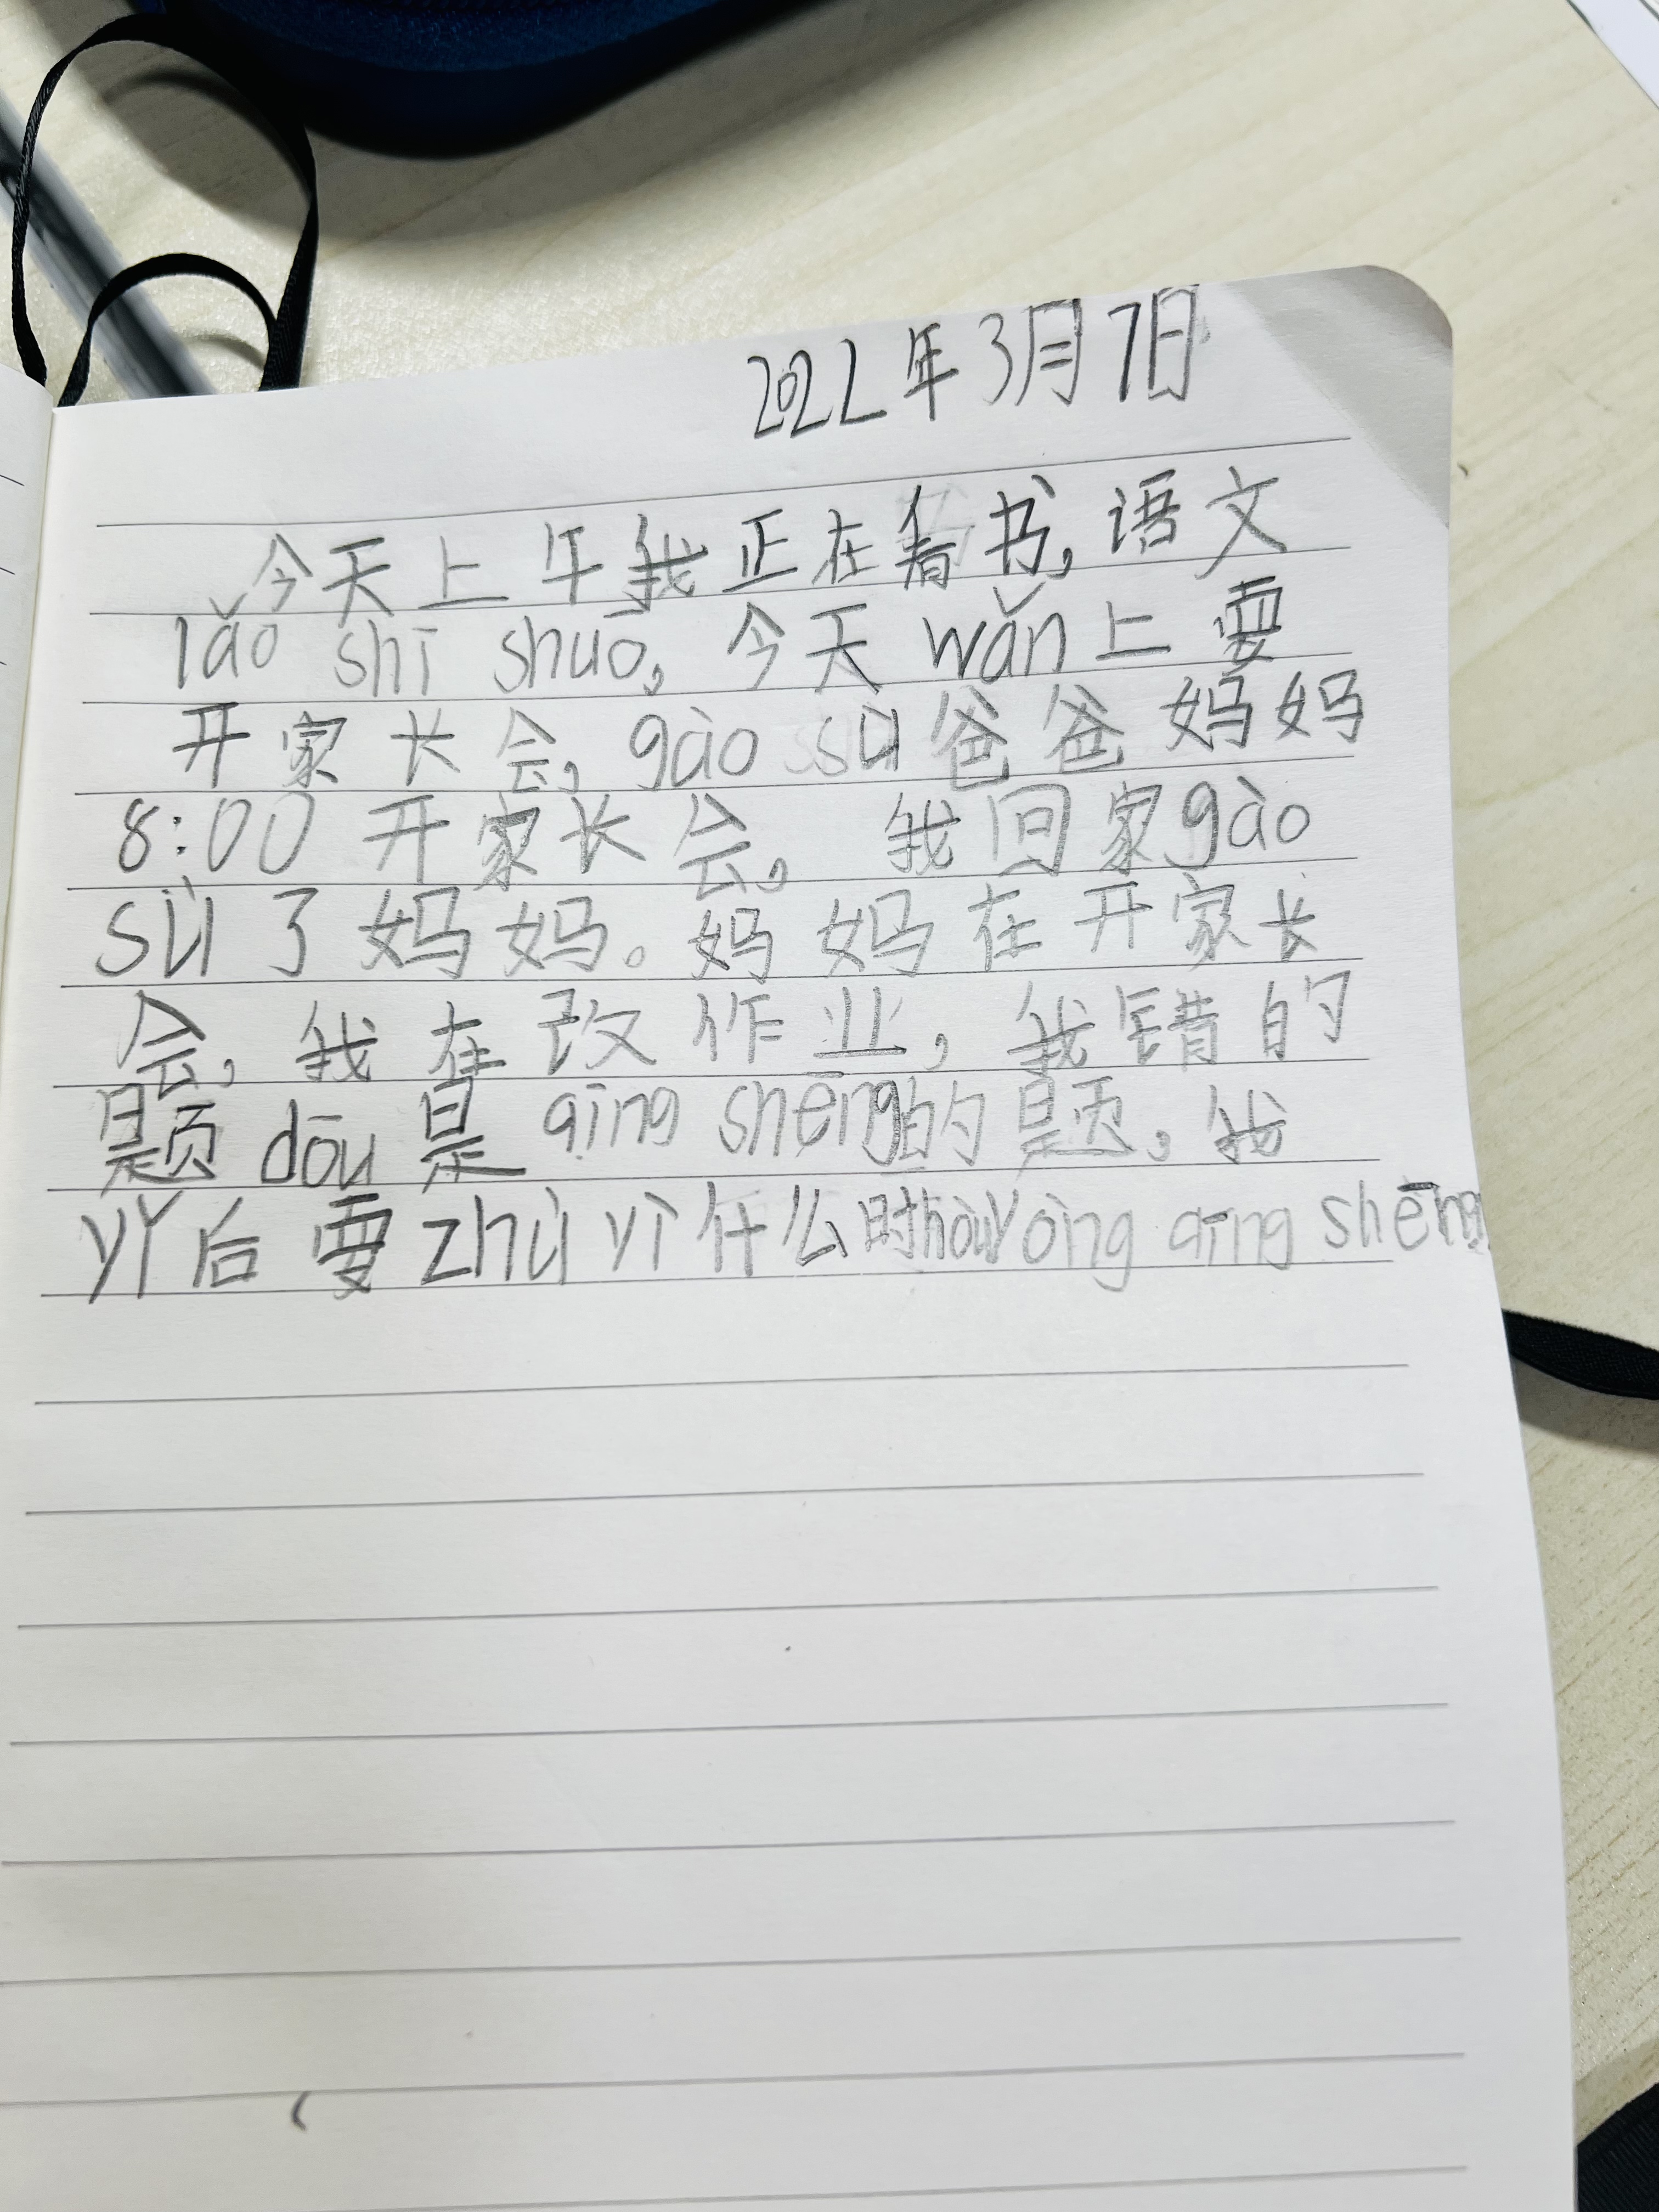 2022年3月7日
今天上午我正在看书,语文
lǎo shī shuō,今天wǎn上要
开家长会,gào sù爸爸妈妈
8:00开家长会。我回家gào
sù了妈妈。妈妈在开家长
会,我在改作业,我错的
题dōu是qīng shēng的题。我
yǐ后要zhù yì什么时hòuyòng qīng shēng